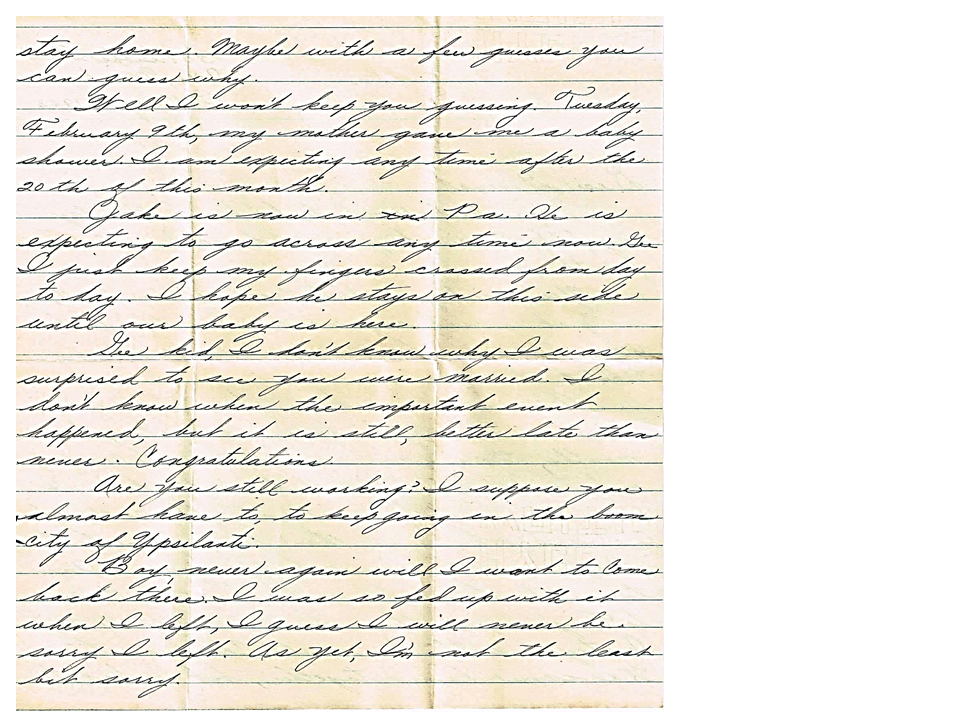 stay home. Maybe with a few guesses you
can guess why.
Well I won't keep you guessing. Tuesday,
February 9th, my mother gave me a baby
shower. I am expecting any time after the
20th of this month.
Jake is now in in Pa. He is
expecting to go across any time now. Gee
I just keep my fingers crossed from day
to day. I hope he stays on this side
until our baby is here.
Gee kid, I don't know why I was
surprised to see you were married. I
don't know when the important event
happened, but it is still, better late than
never. Congratulations.
Are you still working? I suppose you
almost have to, to keep going in the boom
city of Ypsilanti.
Boy, never again will I want to come
back there. I was so fed up with it
when I left, I guess I will never be
sorry I left. As yet, I'm not the least
bit sorry.